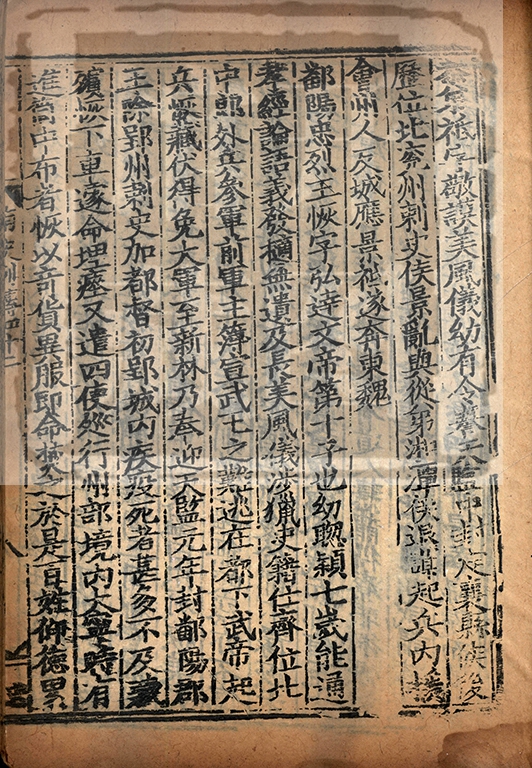 泰弟祗字敬謨美風儀幼有令譽天監中封定襄縣侯後
歷位北兗州刺史侯景亂與從弟湘潭侯退謀起兵內援
會州人反城應景祗遂奔東魏
鄱陽忠烈王恢字弘達文帝第十子也幼聰穎七歲能通
孝經論語義發擿無遺及長美風儀涉獵史籍仕齊位北
中郎外兵參軍前軍主簿宣武王之難逃在都下武帝起
兵恢藏伏得免大軍至新林乃奉迎天監元年封鄱陽郡
王除郢州刺史加都督初郢城內疾疫死者甚多不及藏
殯恢下車遽命埋瘞又遣四使巡行州部境內大寧時有
進筒中布者恢以奇貨異服即命焚之於是百姓仰德累
南史列傳五十二